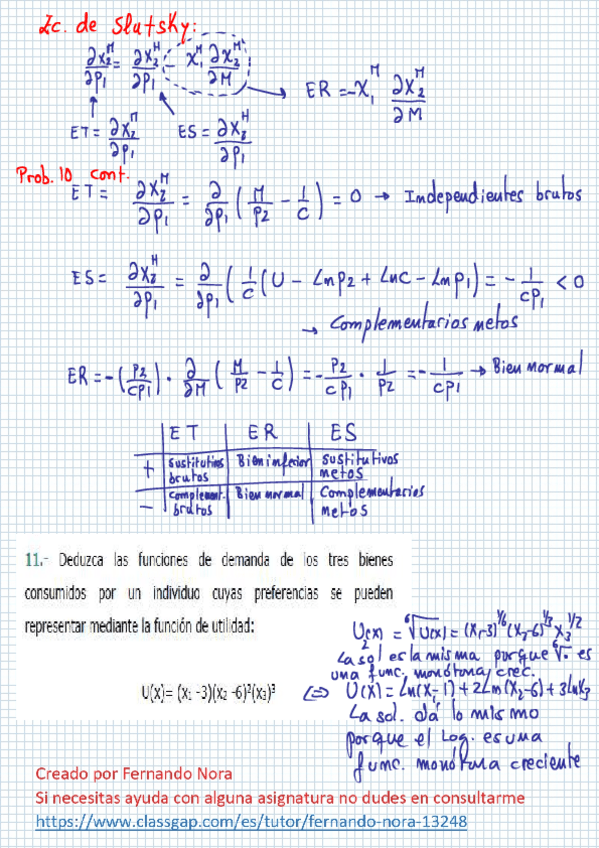 Ec. de Slutsky:
∂x₂ᴹ/∂p₁ = ∂x₂ᴴ/∂p₁ - x₁ᴹ ∂x₂ᴹ/∂M
ER = -x₁ᴹ ∂x₂ᴹ/∂M
ET = ∂x₂ᴹ/∂p₁ ES = ∂x₂ᴴ/∂p₁
Prob. 10 cont.
ET = ∂x₂ᴹ/∂p₁ = ∂/∂p₁ (M/p₂ - 1/c) = 0 → Independientes brutos
ES = ∂x₂ᴴ/∂p₁ = ∂/∂p₁ (1/c (U - Ln p₂ + Ln c - Ln p₁) = - 1/cp₁ < 0
→ Complementarios netos
ER = -(p₂/cp₁) · ∂/∂M (M/p₂ - 1/c) = - p₂/cp₁ · 1/p₂ = - 1/cp₁ → Bien normal
ET ER ES
+ sustitutivos brutos Bien inferior sustitutivos netos
- complement. brutos Bien normal Complementarios netos
11.- Deduzca las funciones de demanda de los tres bienes
consumidos por un individuo cuyas preferencias se pueden
representar mediante la función de utilidad:
U(x)= (x₁ -3)(x₂ -6)²(x₃)³
U₂(x) = ⁶√U(x) = (x₁-3)^1/6 (x₂-6)^1/3 x₃^1/2
La sol es la misma porque ⁶√· es
una func. monótona crec.
⇔ U(x) = Ln(x₁-1) + 2Ln(x₂-6) + 3Lnx₃
La sol. dá lo mismo
porque el Log. es una
func. monótona creciente
Creado por Fernando Nora
Si necesitas ayuda con alguna asignatura no dudes en consultarme
https://www.classgap.com/es/tutor/fernando-nora-13248